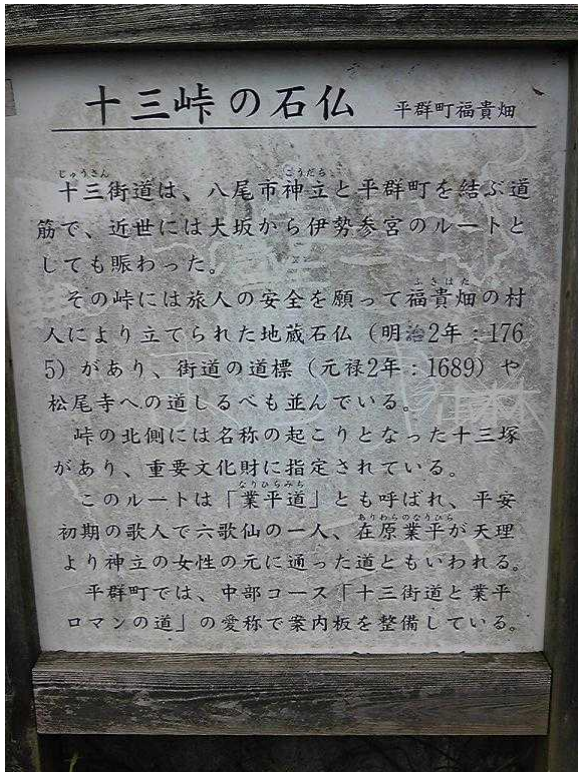 十三峠の石仏 平群町福貴畑
じゅうさん こうだち
十三街道は、八尾市神立と平群町を結ぶ道
筋で、近世には大坂から伊勢参宮のルートと
しても賑わった。
ふきはた
その峠には旅人の安全を願って福貴畑の村
人により立てられた地蔵石仏（明治2年：176
5）があり、街道の道標（元禄2年：1689）や
松尾寺への道しるべも並んでいる。
峠の北側には名称の起こりとなった十三塚
があり、重要文化財に指定されている。
なりひらみち
このルートは「業平道」とも呼ばれ、平安
ありわらのなりひら
初期の歌人で六歌仙の一人、在原業平が天理
より神立の女性の元に通った道ともいわれる。
平群町では、中部コース「十三街道と業平
ロマンの道」の愛称で案内板を整備している。